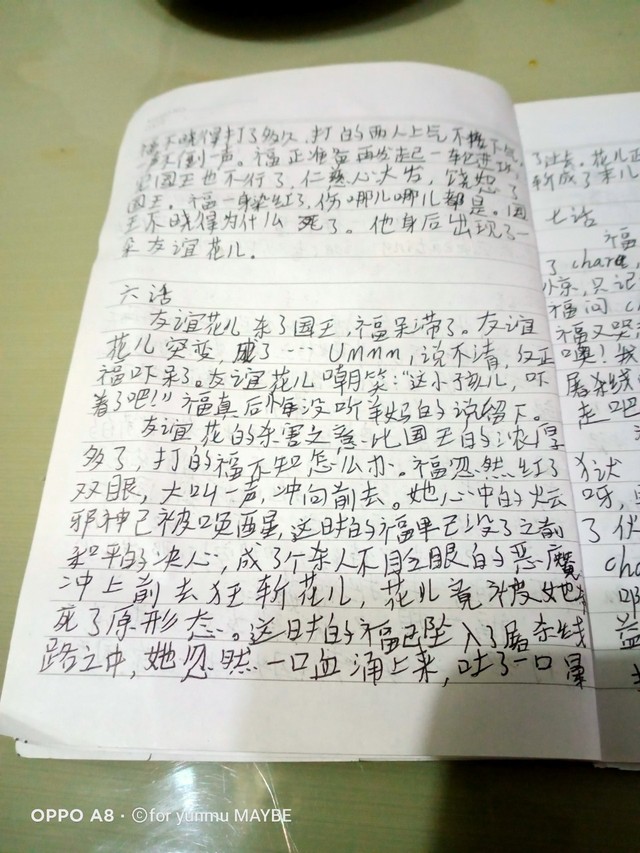 不晓得打了多久,打的两人上气不接下气,
不倒一声。福正准备再发起一轮进攻,
国王也不行了,仁慈心大发,饶恕了
国王。福一身染红了,伤哪儿哪儿都是。国
王不晓得为什么死了。他身后出现了一
朵友谊花儿.
六话
友谊花儿杀了国王,福呆滞了。友谊
花儿突变,成了… Ummm,说不清,反正
福吓呆了。友谊花儿嘲笑:“这小孩儿,吓
着了吧!”福真后悔没听羊妈的说留下。
友谊花的杀害之意比国王的浓厚
多了,打的福不知怎么办。福忽然红了
双眼,大叫一声,冲向前去。她心中的
邪神已被唤醒,这时的福早已没了之前
和平的决心,成了个杀人不眨眼的恶魔
冲上前去狂斩花儿,花儿竟被她
死了原形态。这时的福已坠入了屠杀线
路之中,她忽然一口血涌上来,吐了一口
了过去。花儿正
斩成了末儿
七话
福
了 chara,
惊,只记
福问 c
福又哭
噢!我
屠杀线
走吧
犹
呀,
了伙
cha
OPPO A8 · ©for yunmu MAYBE